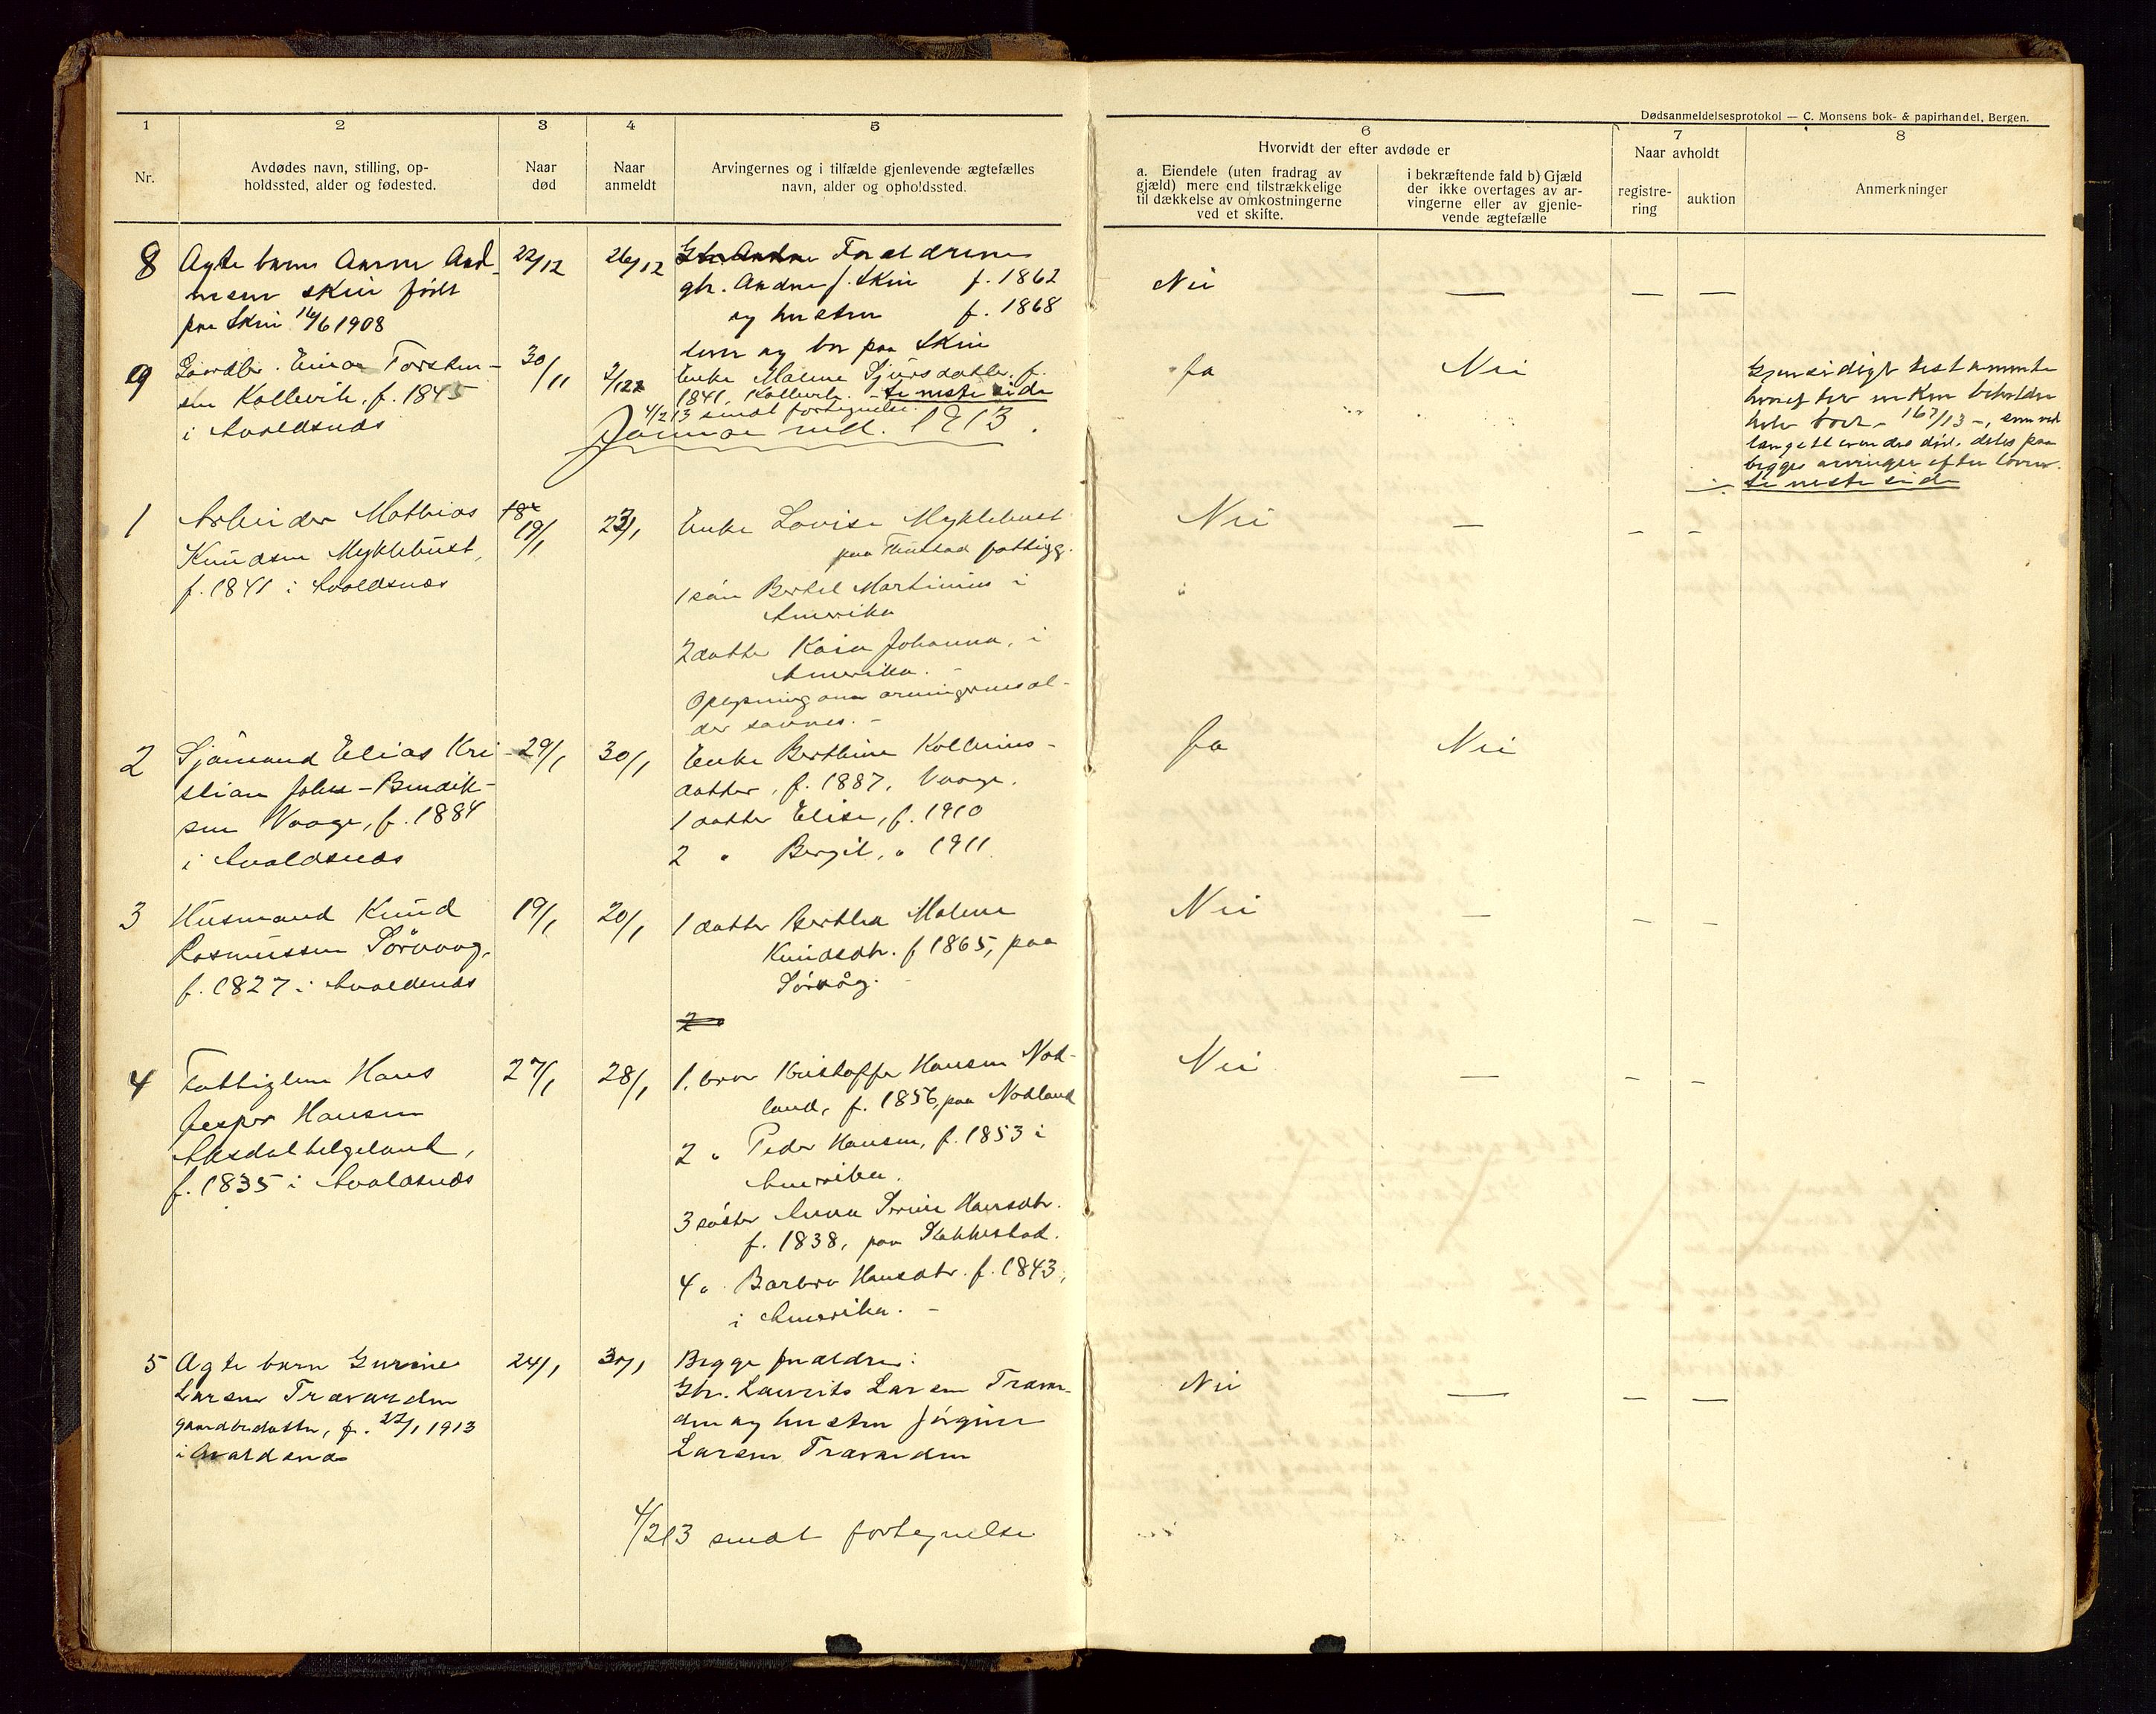 Dødsanmeldelsesprotokol — C. Monsens bok- & papirhandel, Bergen.
1
2
3
4
5
6
7
8
Nr.
Avdødes navn, stilling, op-
holdssted, alder og fødested.
Naar
død
Naar
anmeldt
Arvingernes og i tilfælde gjenlevende ægtefælles
navn, alder og opholdssted.
Hvorvidt der efter avdøde er
a. Eiendele (uten fradrag av
gjæld) mere end tilstrækkelige
til dækkelse av omkostningerne
ved et skifte.
i bekræftende fald b) Gjæld
der ikke overtages av ar-
vingerne eller av gjenle-
vende ægtefælle
Naar avholdt
registre-
ring
auktion
Anmerkninger
8 Ægte barn Anna And-
sen Skeie født
paa Skeie 16/6 1908
22/12
26/12
Forældrene
gbr. Skeie f. 1862
og hustru f. 1868
og bor paa Skeie
Nei — — —
9 Gaardbr. Einar Torsten-
sen Kollevik, f. 1845
i Avaldsnæs
30/11
2/12
Enke Malene Sjursdatter, f.
1841, Kollevik. – Se neste side
4/2 13 sendt fortegnelse.
Ja
Nei
Gjensidigt testamente
hvorefter enken beholder
hele boet – 16/ /13 –, som ved
længstlevendes død, deles paa
begges arvinger efter loven.
Se neste side
Januar md. 1913.
1 Arbeider Mathias
Knudsen Myklebust,
f. 1841 i Avaldsnæs
19/1
23/1
Enke Lovise Myklebust
paa fattigg.
1 søn Bertel Martinius i
Amerika
2 datter Kaia Johanna, i
Amerika. –
Oplysning om arvingernes al-
der savnes. –
Nei — — —
2 Sjømand Elias Kri-
stian Johs-Bendik-
sen Vaage, f. 1884
i Avaldsnæs
29/1
30/1
Enke Berthine Kolbeins-
datter, f. 1887, Vaage.
1 datter Elise, f. 1910
2 " Bergit, " 1911
Ja
Nei
3 Husmand Knud
Rasmussen Sørvaag,
f. 1827 i Avaldsnæs
19/1
20/1
1 datter Berthea Malene
Knudsdtr. f. 1865, paa
Sørvåg. –
2
Nei — — —
4 Fattiglem Hans
Jesper Hansen
Aksdalhelgeland,
f. 1835 i Avaldsnæs
27/1
28/1
1. bror Kristoffer Hansen Nod-
land, f. 1856, paa Nodland
2 " Peder Hansen, f. 1853 i
Amerika.
3 søster Anna Serine Hansdtr.
f. 1838, paa Stakkestad.
4 " Barbro Hansdtr. f. 1843,
i Amerika. –
Nei — — —
5 Ægte barn Gurine
Larsen Trævarden
gaardbr.datter, f. 22/1 1913
i Avaldsnæs
24/1
30/1
Begge forældre:
Gbr. Laurits Larsen Trævar-
den og hustru Jørgine
Larsen Trævarden
Nei — — —
4/2 13 sendt fortegnelse